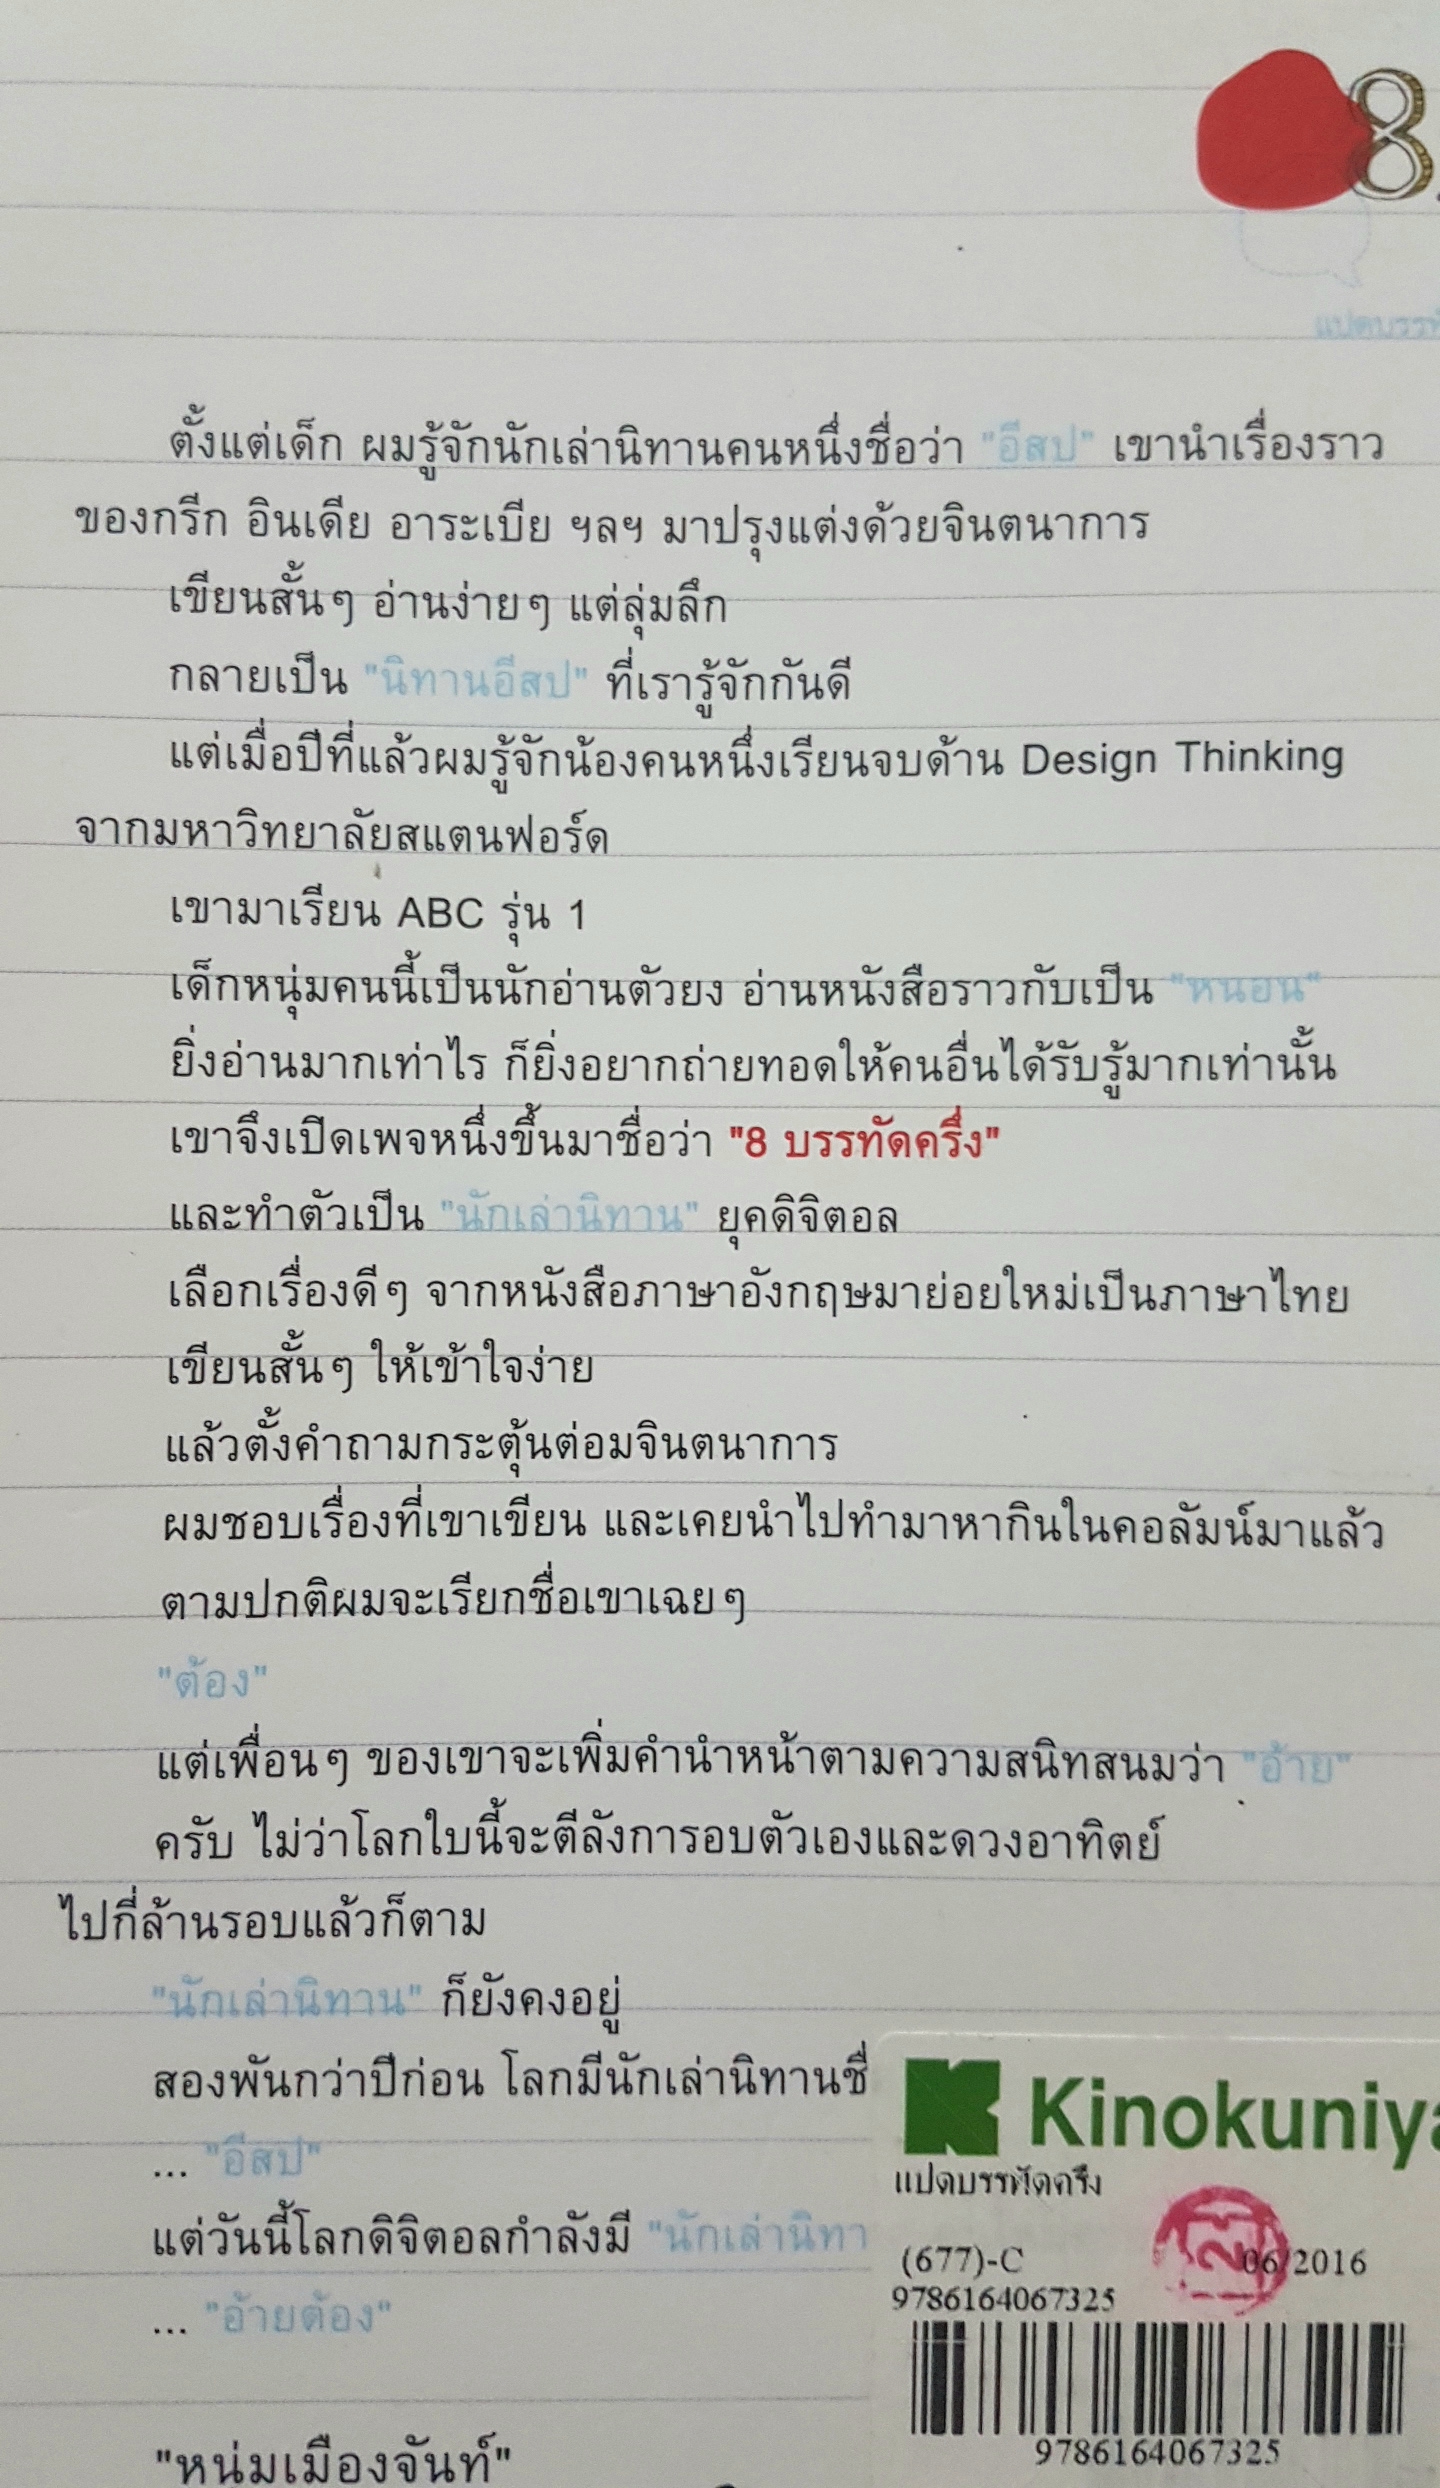 8.
ตั้งแต่เด็ก ผมรู้จักนักเล่านิทานคนหนึ่งชื่อว่า "อีสป" เขานำเรื่องราว
ของกรีก อินเดีย อาระเบีย ฯลฯ มาปรุงแต่งด้วยจินตนาการ
เขียนสั้นๆ อ่านง่ายๆ แต่ลุ่มลึก
กลายเป็น "นิทานอีสป" ที่เรารู้จักกันดี
แต่เมื่อปีที่แล้วผมรู้จักน้องคนหนึ่งเรียนจบด้าน Design Thinking
จากมหาวิทยาลัยสแตนฟอร์ด
เขามาเรียน ABC รุ่น 1
เด็กหนุ่มคนนี้เป็นนักอ่านตัวยง อ่านหนังสือราวกับเป็น "หนอน"
ยิ่งอ่านมากเท่าไร ก็ยิ่งอยากถ่ายทอดให้คนอื่นได้รับรู้มากเท่านั้น
เขาจึงเปิดเพจหนึ่งขึ้นมาชื่อว่า "8 บรรทัดครึ่ง"
และทำตัวเป็น "นักเล่านิทาน" ยุคดิจิตอล
เลือกเรื่องดีๆ จากหนังสือภาษาอังกฤษมาย่อยใหม่เป็นภาษาไทย
เขียนสั้นๆ ให้เข้าใจง่าย
แล้วตั้งคำถามกระตุ้นต่อมจินตนาการ
ผมชอบเรื่องที่เขาเขียน และเคยนำไปทำมาหากินในคอลัมน์มาแล้ว
ตามปกติผมจะเรียกชื่อเขาเฉยๆ
"ต้อง"
แต่เพื่อนๆ ของเขาจะเพิ่มคำนำหน้าตามความสนิทสนมว่า "อ้าย"
ครับ ไม่ว่าโลกใบนี้จะตีลังการอบตัวเองและดวงอาทิตย์
ไปกี่ล้านรอบแล้วก็ตาม
"นักเล่านิทาน" ก็ยังคงอยู่
สองพันกว่าปีก่อน โลกมีนักเล่านิทานชื่
... "อีสป"
แต่วันนี้โลกดิจิตอลกำลังมี "นักเล่านิทา
... "อ้ายต้อง"
"หนุ่มเมืองจันท์"
Kinokuniya
แปดบรรทัดครึ่ง
(677)-C 06/2016
9786164067325
9786164067325